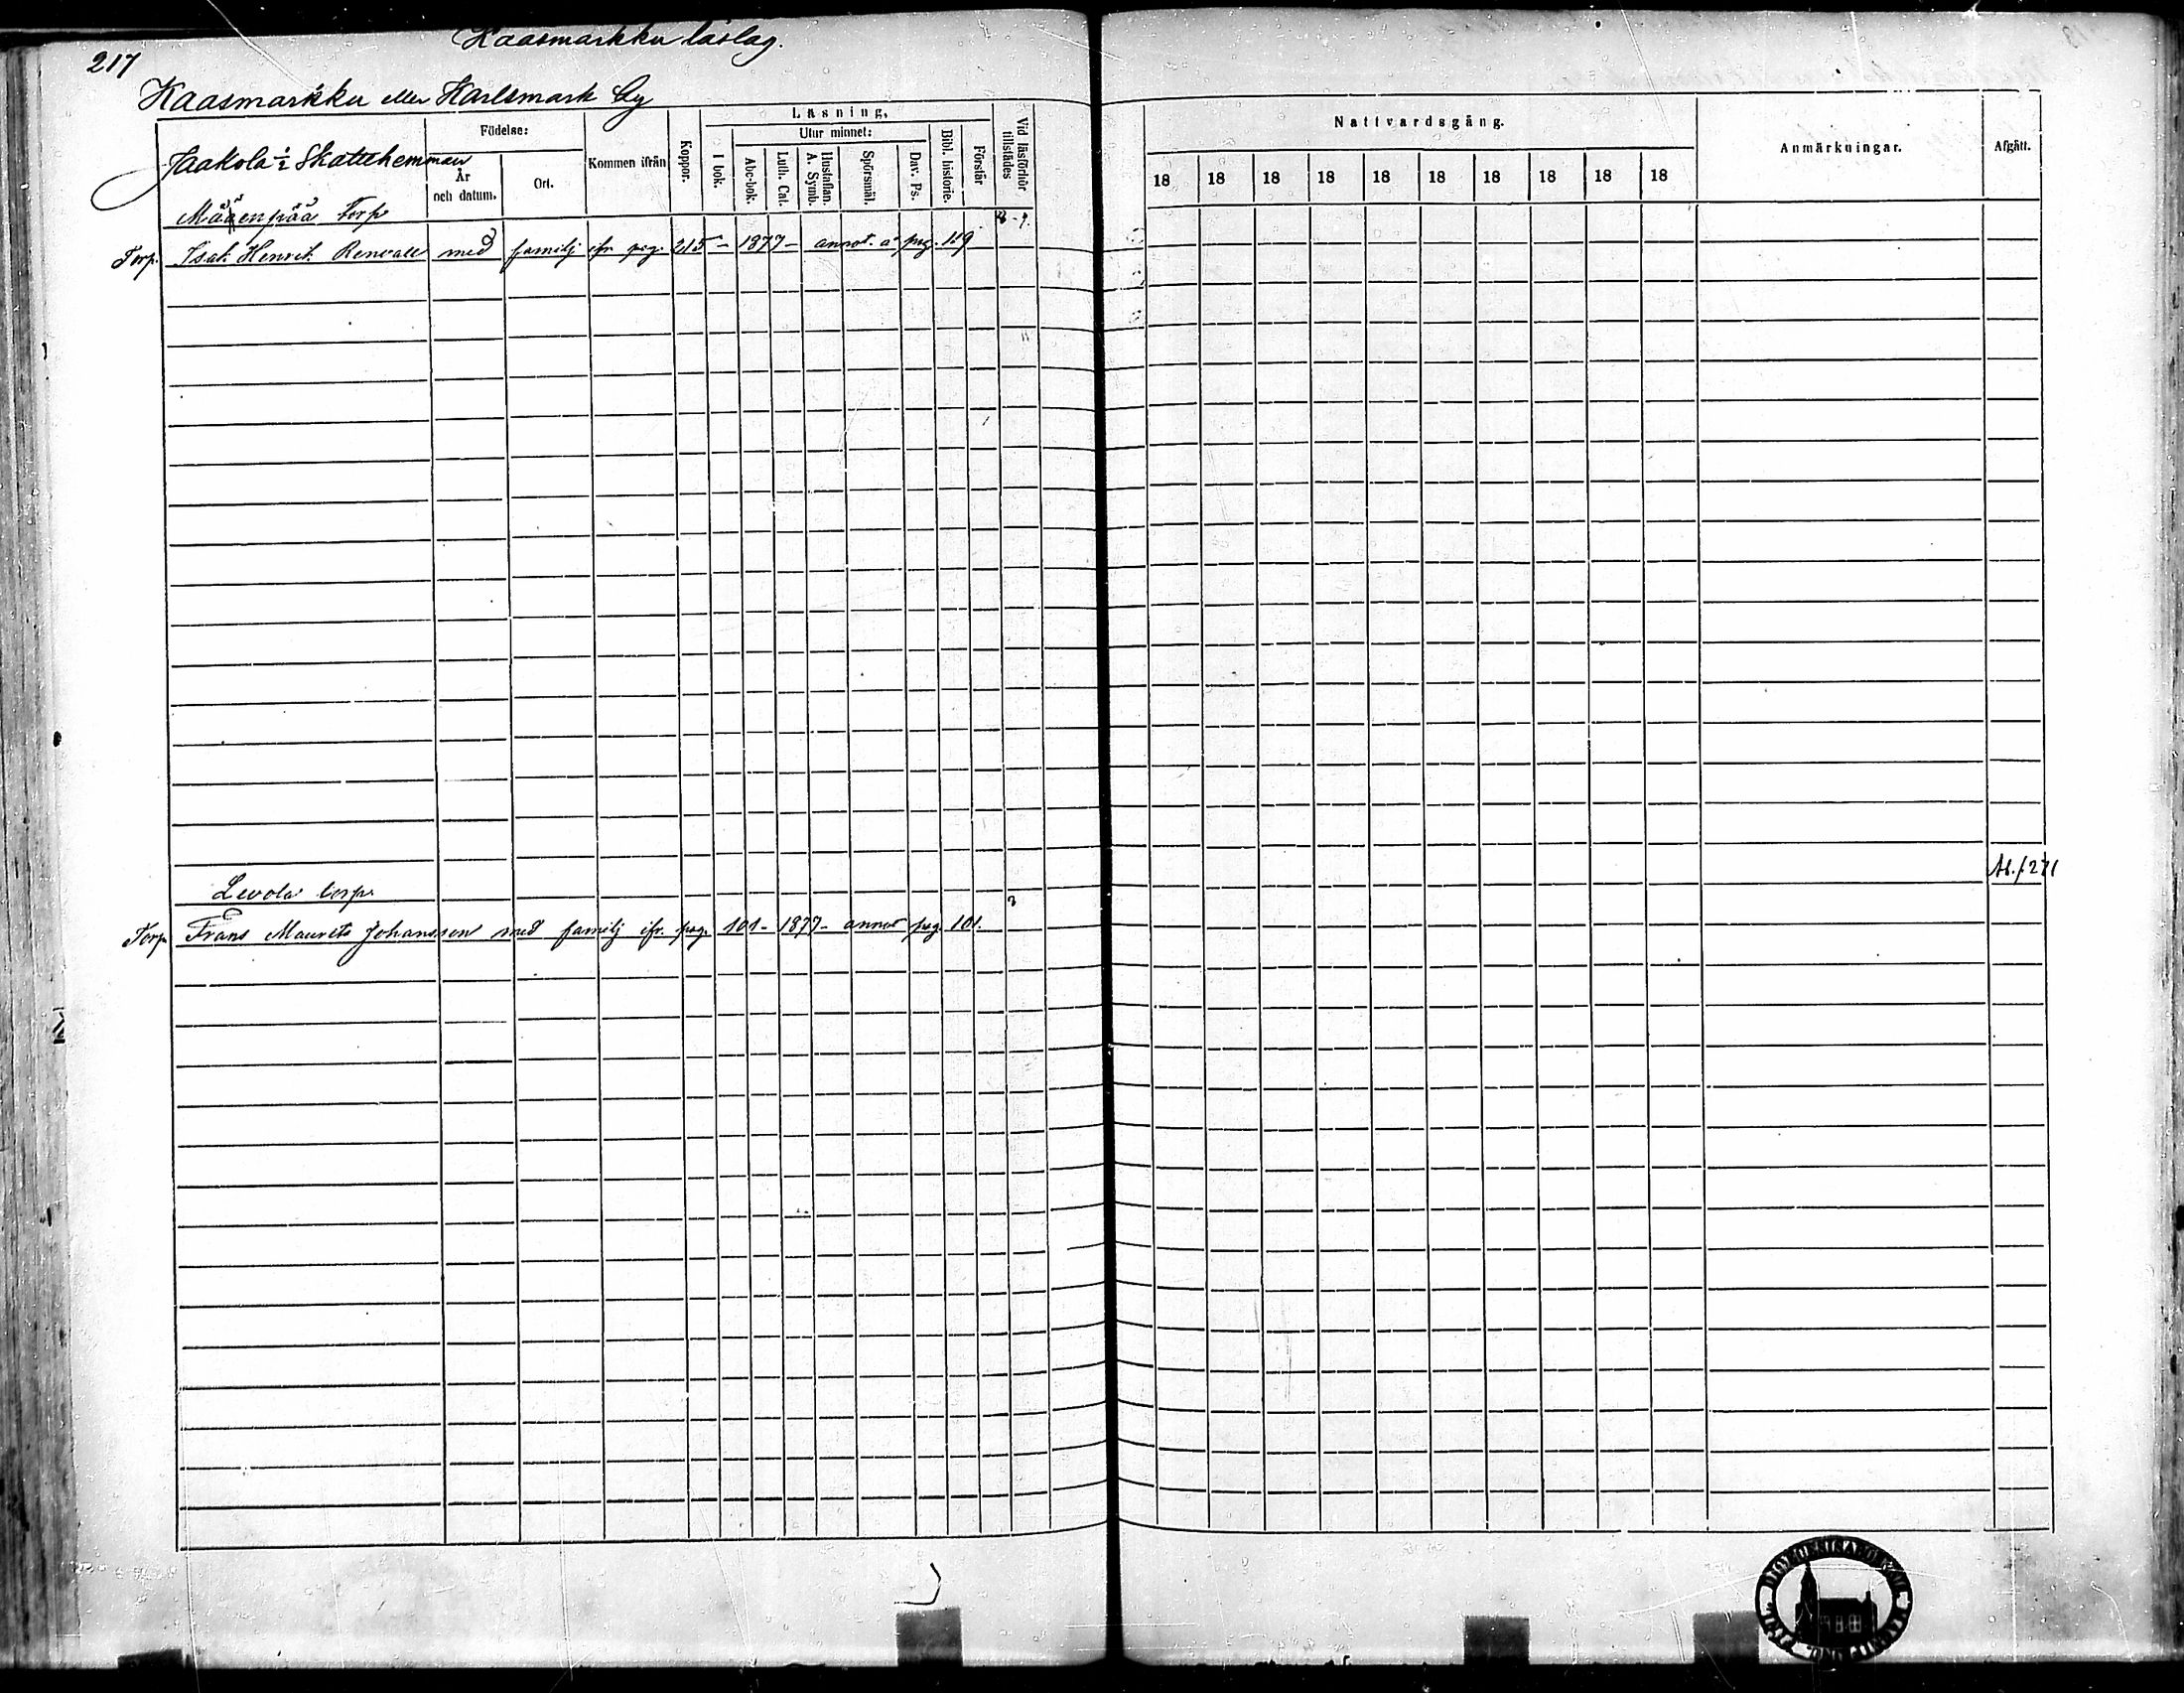 Kaasmarkku läslag.
217
Kaasmarkku eller Karlsmark by
Jaakola ½ Skattehemman
Födelse:
År och datum.
Ort.
Kommen ifrån
Koppor.
Läsning.
I bok.
Utur minnet:
Abc-bok.
Luth. Cat.
Hustaflan. A. Symb.
Spörsmål.
Dav. Ps.
Bibl. historie.
Förstår
Vid läsförhör tillstädes
Nattvardsgång.
18 18 18 18 18 18 18 18 18 18
Anmärkningar.
Afgått.
Mäenpää Torp
Torp. Isak Henrik Renvall med familj ifr pag. 215 - 1877 - annot. å pag. 119
Levola torp
Torp. Frans Maurits Johansson med familj ifr. pag. 101 - 1877 - annot pag 101.